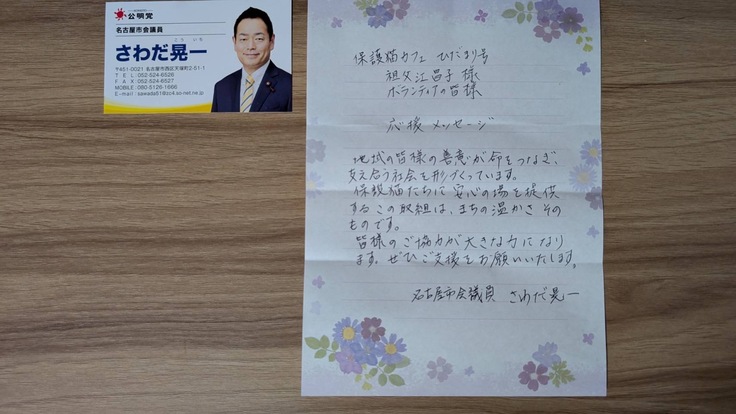 公明党
名古屋市会議員
こういち
さわだ晃一
〒451-0021 名古屋市西区天塚町2-51-1
TEL:052-524-6526
FAX:052-524-6527
MOBILE:090-5126-1666
E-mail:sawada51@zc4.so-net.ne.jp
保護猫カフェ ひだまり号
祖父江昌子様
ボランティアの皆様
応援メッセージ
地域の皆様の善意が命をつなぎ、
支え合う社会を形づくっています。
保護猫たちに安心の場を提供
するこの取組は、まちの温かさその
ものです。
皆様のご協力が大きな力になり
ます。ぜひご支援をお願いいたします。
名古屋市会議員 さわだ晃一